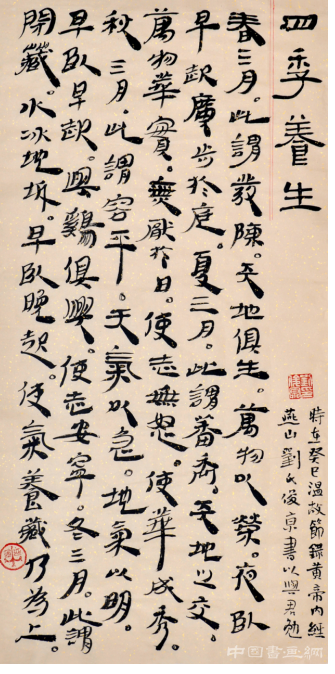 四季養生
春三月。此謂發陳。天地俱生。萬物以榮。夜臥
早起廣步於庭。夏三月。此謂蕃秀。天地之交。
萬物華實。無厭於日。使志無怒。使華成秀。
秋三月。此謂容平。天氣以急。地氣以明。
早臥早起。與鷄俱興。使志安寧。冬三月。此謂
閉藏。水冰地坼。早臥晚起。使氣養藏乃為上。
時在癸巳溫故節錄黃帝內經
燕山劉氏俊京書以與君勉
中国書画網